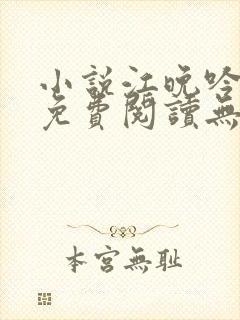 小說江晚吟
免費閱讀無
本宮無耻